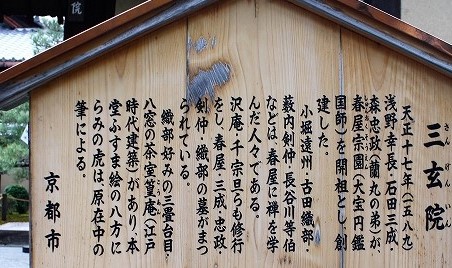 院
三玄院
さんげんいん
天正十七年(一五八九)
浅野幸長・石田三成・
森忠政(蘭丸の弟)が、
春屋宗園(大宝円鑑
国師)を開祖とし創
建した。
小堀遠州・古田織部・
薮内剣仲・長谷川等伯
などは、春屋に禅を学
んだ人々である。
沢庵・千宗旦らも修行
をし、春屋・三成・忠政・
剣仲・織部の墓がまつ
られている。
織部好みの三畳台目・
八窓の茶室篁庵(江戸
時代建築)があり、本
堂ふすま絵の八方に
らみの虎は、原在中の
筆による。
京都市